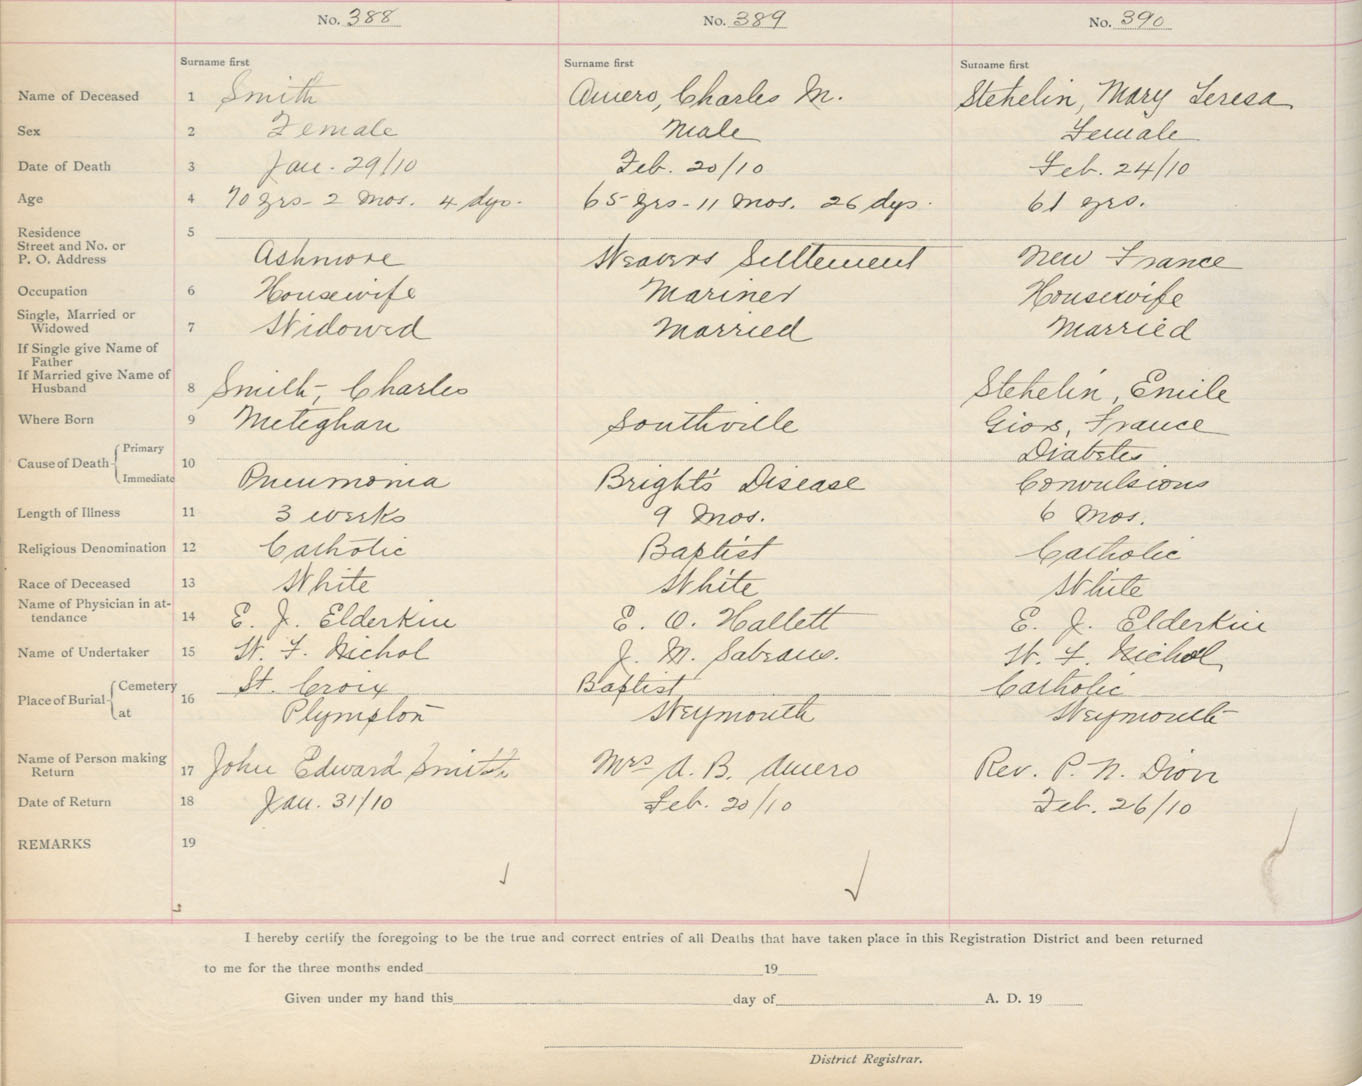 No. 388 No. 389 No. 390
Surname first Surname first Surname first
Name of Deceased 1 Smith Amero, Charles M. Stehelin, Mary Teresa
Sex 2 Female Male Female
Date of Death 3 Jan. 29/10 Feb. 20/10 Feb. 24/10
Age 4 70 yrs - 2 mos. 4 dys. 65 yrs - 11 mos. 26 dys. 61 yrs.
Residence 5
Street and No. or
P. O. Address Ashmore Weavers Settlement New France
Occupation 6 Housewife Mariner Housewife
Single, Married or
Widowed 7 Widowed Married Married
If Single give Name of
Father
If Married give Name of
Husband 8 Smith, Charles Stehelin, Emile
Where Born 9 Meteghan Southville Giors, France
Cause of Death Primary Diabetes
10
Immediate Pneumonia Bright's Disease Convulsions
Length of Illness 11 3 weeks 9 mos. 6 mos.
Religious Denomination 12 Catholic Baptist Catholic
Race of Deceased 13 White White White
Name of Physician in at-
tendance 14 E. J. Elderkin E. O. Hallett E. J. Elderkin
Name of Undertaker 15 W. F. Nichol J. M. Sabeans. W. F. Nichol
Place of Burial Cemetery St. Croix Baptist Catholic
at 16 Plympton Weymouth Weymouth
Name of Person making
Return 17 John Edward Smith Mrs A. B. Amero Rev. P. N. Dion
Date of Return 18 Jan. 31/10 Feb. 20/10 Feb. 26/10
REMARKS 19
I hereby certify the foregoing to be the true and correct entries of all Deaths that have taken place in this Registration District and been returned
to me for the three months ended 19
Given under my hand this day of A. D. 19
District Registrar.